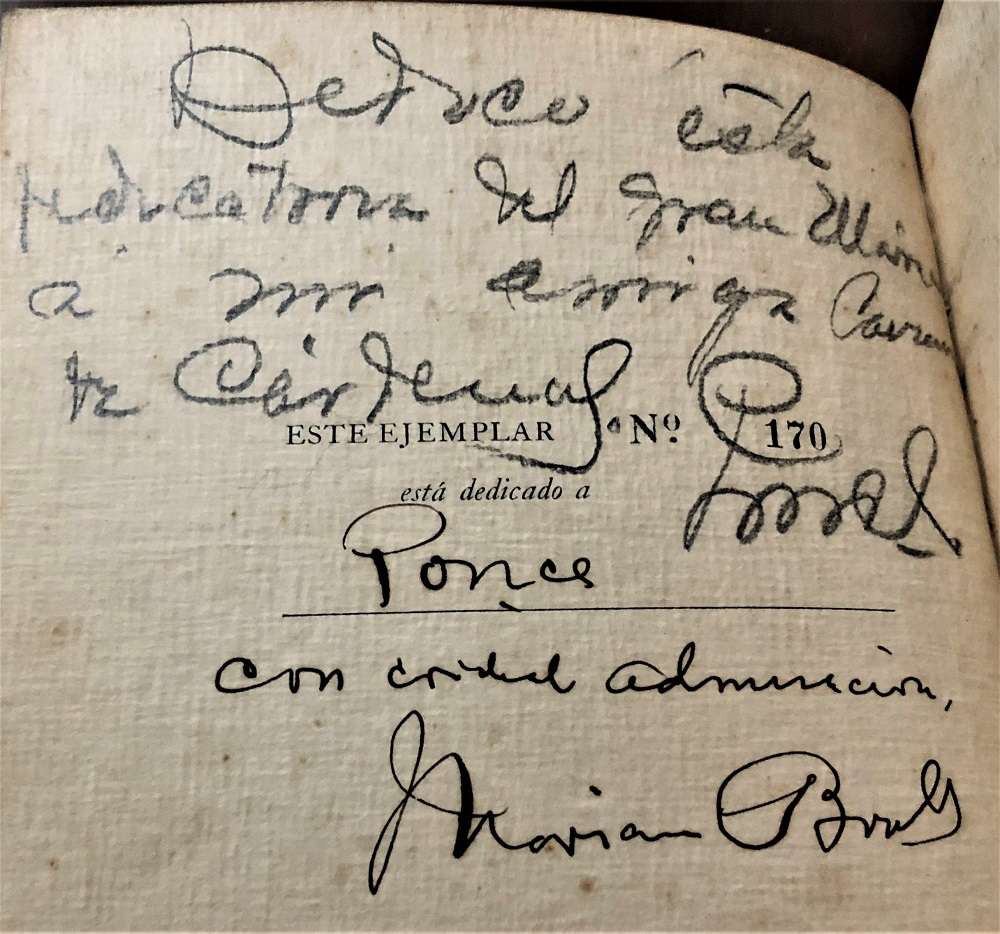 Dedico ésta
dedicatoria del gran
a mi amiga Carmen
de Cárdenas
ESTE EJEMPLAR Nº 170
está dedicado a
Ponce
con cordial admiración,
Mariano Brull